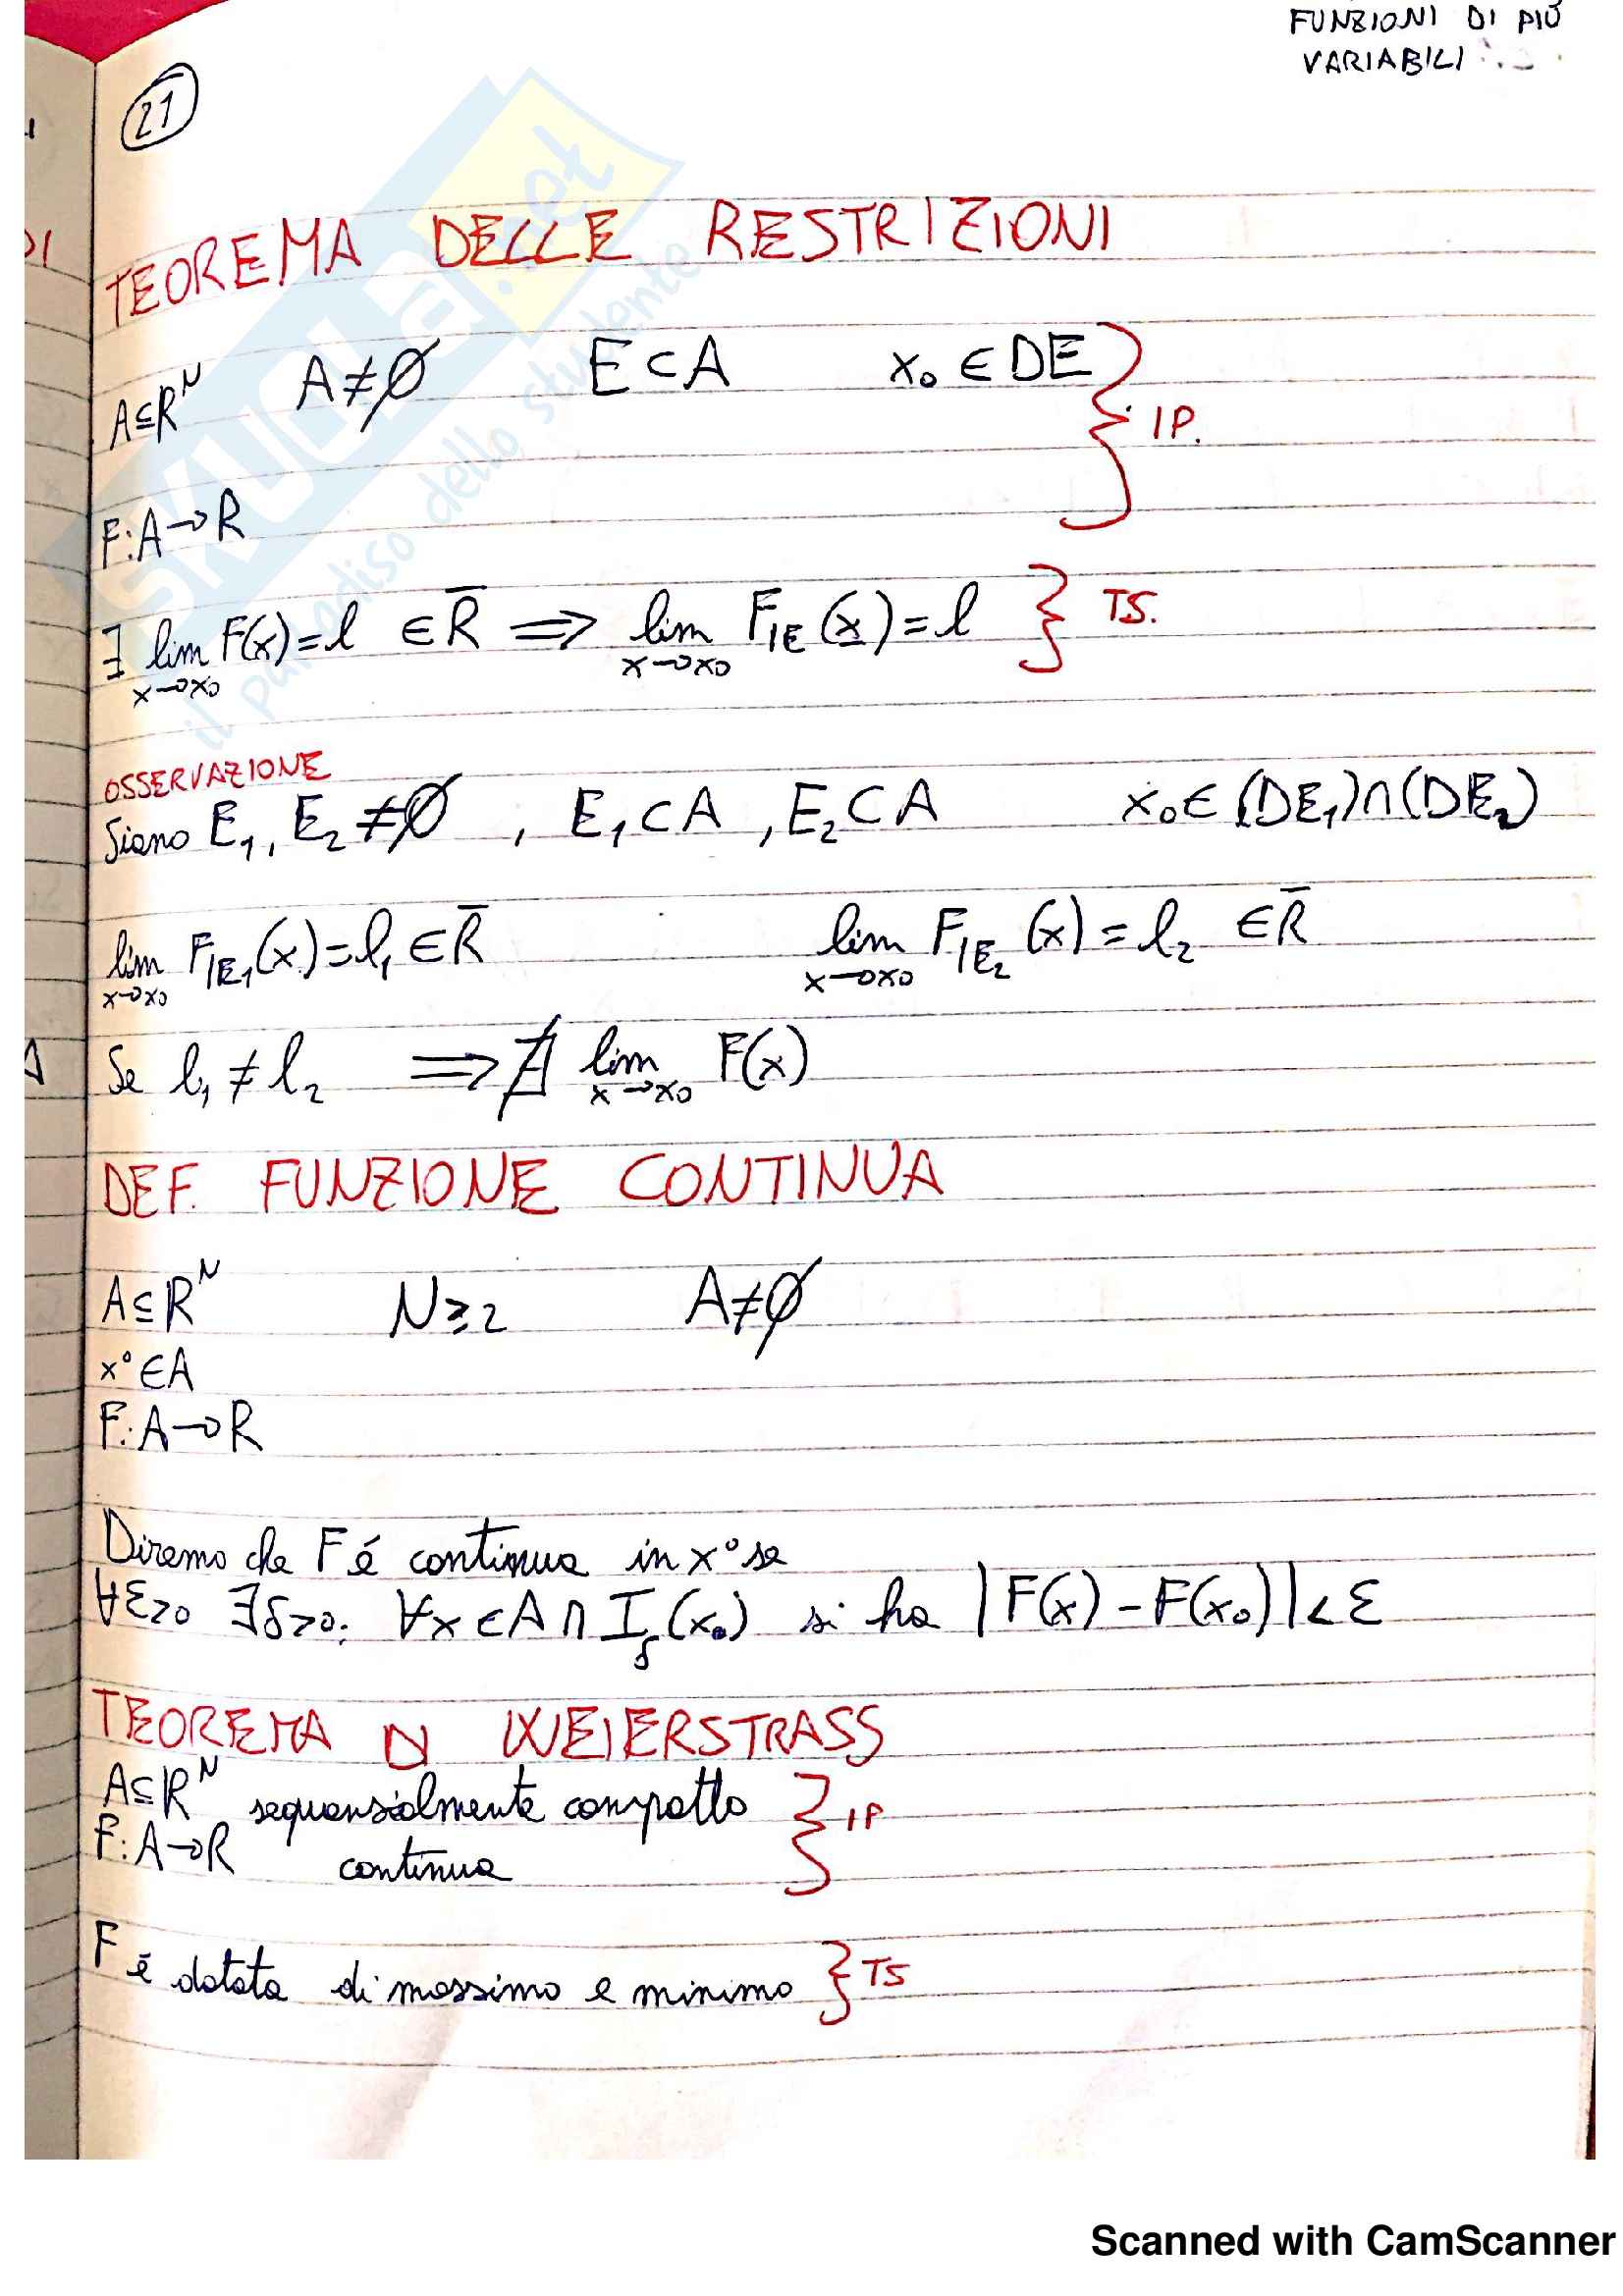 FUNZIONI DI PIÙ
VARIABILI
21
TEOREMA DELLE RESTRIZIONI
A⊆R^N A≠∅ E⊂A x₀ ∈ DE } IP.
F:A→R
∃ lim_{x→x₀} F(x)=l ∈ R̄ ⟹ lim_{x→x₀} F_{|E}(x)=l } TS.
OSSERVAZIONE
Siano E₁, E₂ ≠∅ , E₁⊂A , E₂⊂A x₀∈(DE₁)∩(DE₂)
lim_{x→x₀} F_{|E₁}(x)=l₁∈R̄ lim_{x→x₀} F_{|E₂}(x)=l₂ ∈R̄
Se l₁≠l₂ ⟹ ∄ lim_{x→x₀} F(x)
DEF. FUNZIONE CONTINUA
A⊆R^N N≥2 A≠∅
x°∈A
F:A→R
Diremo che F é continua in x° se
∀ε>0 ∃δ>0: ∀x∈A∩I_δ(x₀) si ha |F(x)-F(x₀)|<ε
TEOREMA DI WEIERSTRASS
A⊆R^N sequenzialmente compatto } IP
F:A→R continua
F é dotata di massimo e minimo } TS
SKUOLA.net
il paradiso dello studente
Scanned with CamScanner